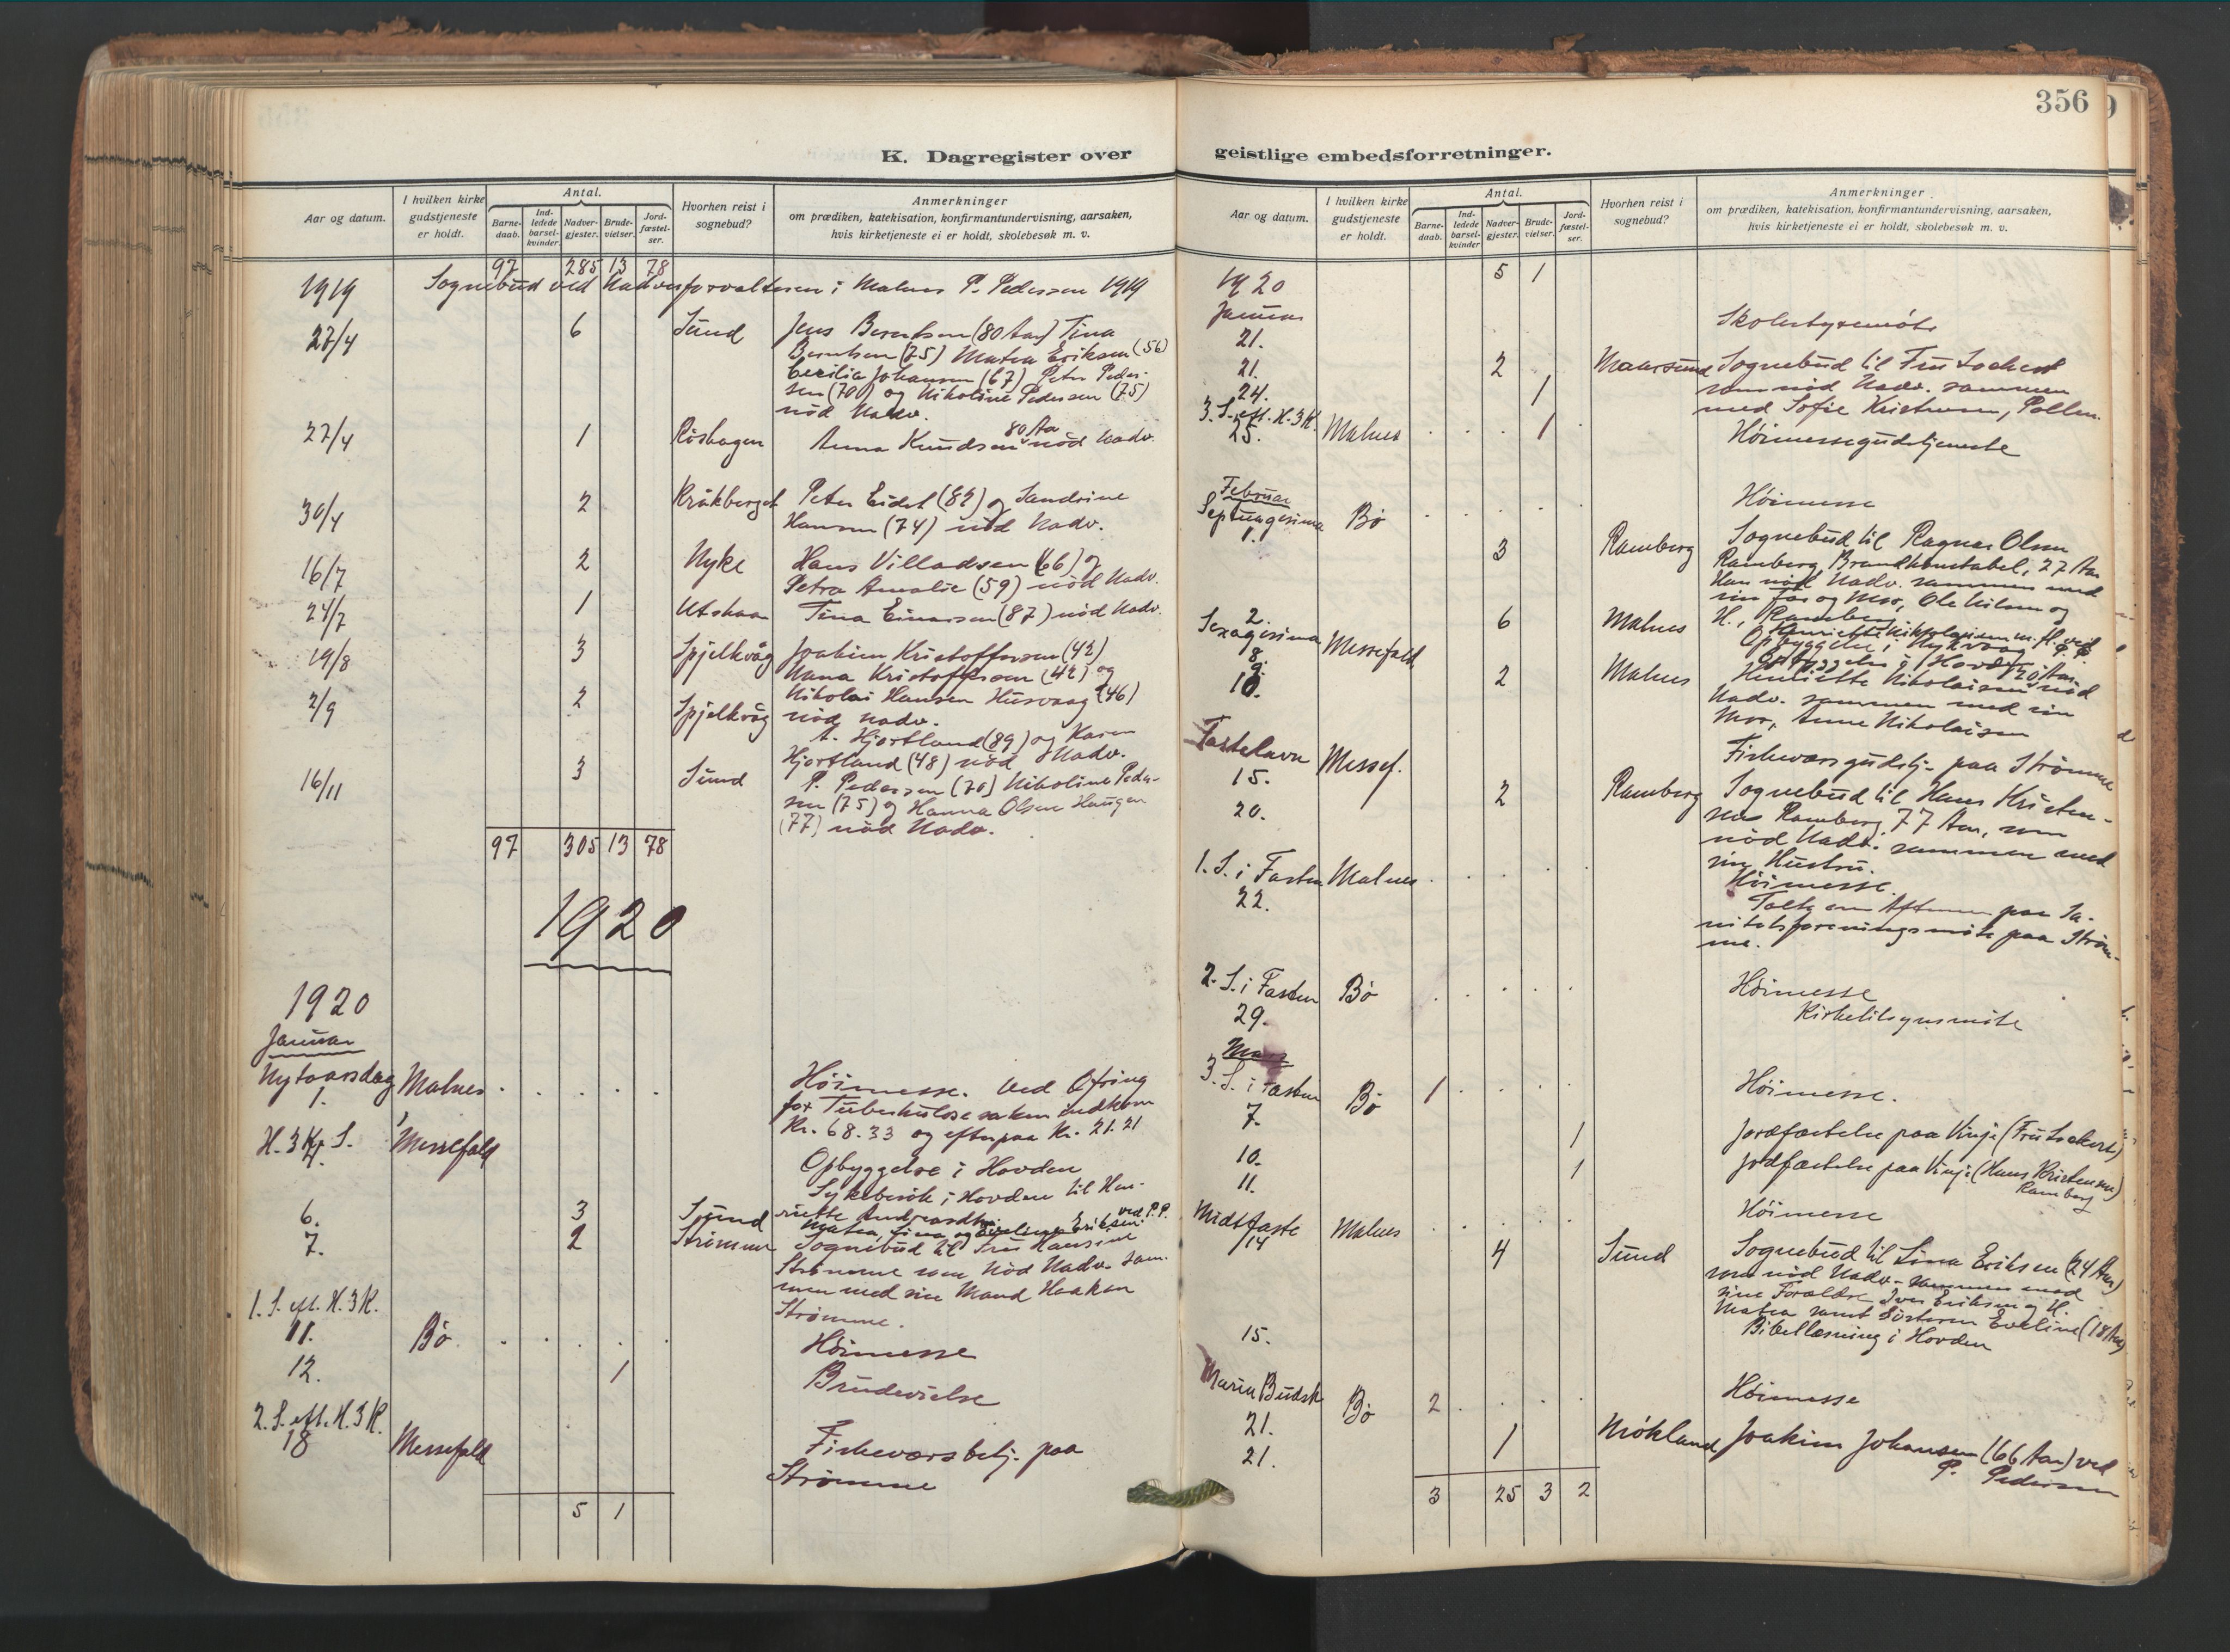 K. Dagregister over
Aar og datum.
I hvilken kirke gudstjeneste er holdt.
Antal.
Barnedaab.
Indledede barselkvinder.
Nadvergjester.
Brudevielser.
Jordfæstelser.
Hvorhen reist i sognebud?
Anmerkninger
om prædiken, katekisation, konfirmantundervisning, aarsaken,
hvis kirketjeneste ei er holdt, skolebesøk m. v.
97 285 13 78
1919 Sognebud ved Nadverforvalteren i Malnes P. Pedersen 1919
27/4 6 Sund Jens Berntsen (80 Aar) Tina
Berntsen (75) Matea Eriksen (56)
Cecilia Johansen (67) Peter Peder-
sen (70) og Nikoline Pedersen (75)
nöd Nadv.
27/4 1 Röshagen Anna Knudsen 80 Aa nöd Nadv.
30/4 2 Kråkberget Peter Eidet (82) og Sandrine
Hansen (74) nöd Nadv.
16/7 2 Nyke Hans Villadsen (66) og
Petra Amalie (59) nöd Nadv.
24/7 1 Utskaar Tina Einarsen (87) nöd Nadv.
19/8 3 Spjelkvåg Joakim Kristoffersen (42)
Nana Kristoffersen (42) og
Nikolai Hansen Husvaag (46)
nöd Nadv.
2/9 2 Spjelkvåg A. Hjortland (89) og Karen
Hjortland (48) nöd Nadv.
16/11 3 Sund P. Pedersen (70) Nikoline Peder-
sen (75) og Hanna Olsen Haugen
(77) nöd Nadv.
97 305 13 78
1920
1920
Januar
Nytaarsdag 1. Malnes Höimesse. Ved Ofring
for Tuberkulosesaken indkom
Kr. 68.33 og efterpaa Kr. 21.21
H. 3 K. S. 4. Messefald Opbyggelse i Hovden
Sykebesök i Hovden til Hen-
riette Andreasdtr.
6. 3 Sund Matea, Tina og Eveline Eriksen ved P.P.
7. 2 Strömme Sognebud til Fru Hansine
Strömme som nöd Nadv. sam-
men med sin Mand Haakon
Strömme.
1. S. eft. H. 3 K. 11. Bö Höimesse
12. 1 Brudevielse
2. S. eft. H. 3 K. 18 Messefald Fiskeværsbetj. paa
Strömme
5 1
356
geistlige embedsforretninger.
Aar og datum.
I hvilken kirke gudstjeneste er holdt.
Antal.
Barnedaab.
Indledede barselkvinder
Nadvergjester.
Brudevielser.
Jordfæstelser.
Hvorhen reist i sognebud?
Anmerkninger
om prædiken, katekisation, konfirmantundervisning, aarsaken,
hvis kirketjeneste ei er holdt, skolebesøk m. v.
5 1
1920
Januar
21. Skolestyremöte
21. 2 Maarsund Sognebud til Fru
som nöd Nadv. sammen
med Sofie Kristensen, Pollen.
24. 1
3. S. eft. H. 3 K. 25. Malnes 1 Höimessegudstjeneste
Februar
Septuagesima 1. Bö Höimesse
2. 3 Ramberg Sognebud til Ragnar Olsen
Ramberg, Brandkonstabel, 27 Aar
Han nöd Nadv. sammen med
sin Far og Mor, Ole Nilsen og
H., Ramberg
Sexagesima 8. Messefald 6 Malnes Henriette Nikolaisen m. fl. ved P.P.
Opbyggelse i Nykvaag
9. Opbyggelse i Hovden
10. 2 Malnes Henriette Nikolaisen 20 Aar nöd
Nadv. sammen med sin
Mor, Anne Nikolaisen
Fastelavn 15. Messef. Fiskeværsgudstj. paa Strömme
20. 2 Ramberg Sognebud til Hans Kristen-
sen Ramberg, 77 Aar, som
nöd Nadv. sammen med
sin Hustru.
1. S. i Fasten 22. Malnes Höimesse.
Talte om Aftenen paa Sa-
nitetsforeningsmöte paa Ström-
me.
2. S. i Fasten 29. Bö Höimesse
Kirketilsynsmöte
Mars
3. S. i Fasten 7. Bö 1 Höimesse.
10. 1 Jordfæstelse paa Vinje (Fru
11. 1 Jordfæstelse paa Vinje (Hans Kristensen)
Ramberg
Midtfaste 14 Malnes Höimesse
4 Sund Sognebud til Lina Eriksen (24 Aar)
som nöd Nadv. sammen med
sine Forældre Iver Eriksen og H.
Matea samt Sösteren Eveline (18 Aar)
15. Bibellæsning i Hovden
Maria Budsk 21. Bö 2 Höimesse
21. 1 Mökland Joakim Johansen (66 Aar) ved
P. Pedersen
3 25 3 2